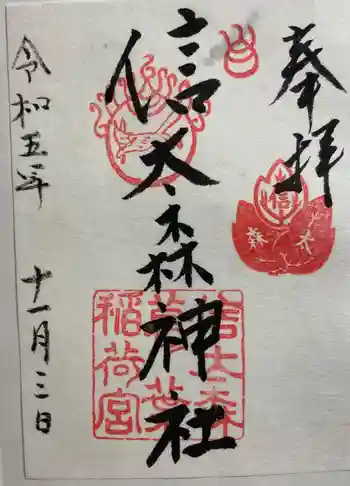 奉拝
信太森神社
令和五年 十一月三日
信
太
森
信太森
葛葉
稲荷宮